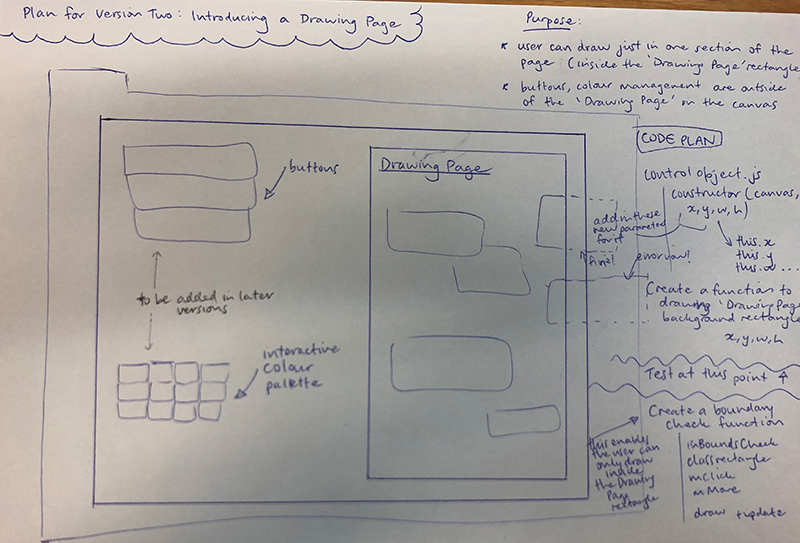 Plan for Version Two: Introducing a Drawing Page
Purpose:
user can draw just in one section of the
page (inside the 'Drawing Page' rectangle
buttons, colour management are outside
of the 'Drawing Page' on the canvas
buttons
to be added in later
versions
interactive
colour
palette
Drawing Page
CODE PLAN
control object.js
constructor (canvas,
x, y, w, h)
add in these
new parameters
for it
this.x
this.y
fine!
error now!
Create a function to
drawing 'Drawing Page
background rectangle
x, y, w, h
Test at this point
Create a boundary
check function
this enables
the user can
only draw
inside
the Drawing
Page
rectangle
inBoundsCheck
class rectangle
mClick
mMove
draw + update